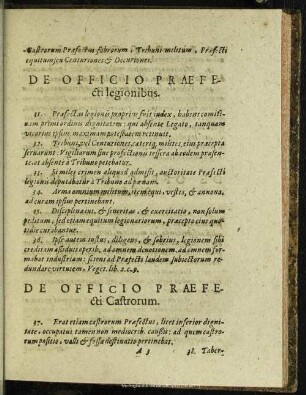 Castrorum Præfectus fabrorum, Tribuni militum, Præfecti
equitum seu Centuriones & Decuriones.
DE OFFICIO PRAEFE-
cti legionibus.
31. Præfectus legionis proprius fuit iudex, habens comitiuæ
primi ordinis dignitatem; qui absente Legato, tanquam
vicarius ipsius maximam potestatem retinuit.
32. Tribuni, vel Centuriones, cæteriq; milites, eius præcepta
seruarunt. Vigiliarum siue profectionis tessera ab eodem præsen-
te, at absente à Tribuno petebatur.
33. Si miles crimen aliquod admisit, auctoritate Præfecti
legionis deputabatur à Tribuno ad pœnam.
34. Arma omnium militum, item equi, vestes, & annona,
ad curam ipsius pertinebant.
35. Disciplina eius, & seueritas, & exercitatio, non solum pe-
ditum, sed etiam equitum legionariorum, præceptis eius quoti-
die curabatur.
36. Ipse autem iustus, diligens, & sobrius, legionem sibi
creditam assiduis operib. ad omnem deuotionem, ad omnem for-
mabat industriam: sciens ad Præfecti laudem subiectorum re-
dundare virtutem. Veget. lib. 2. c. 9.
DE OFFICIO PRAEFE-
cti Castrorum.
37. Erat etiam castrorum Præfectus, licet inferior digni-
tate, occupatus tamen non mediocrib. caussis: ad quem castro-
rum positio, valli & fossæ destinatio pertinebat.
A 3 38. Taber-